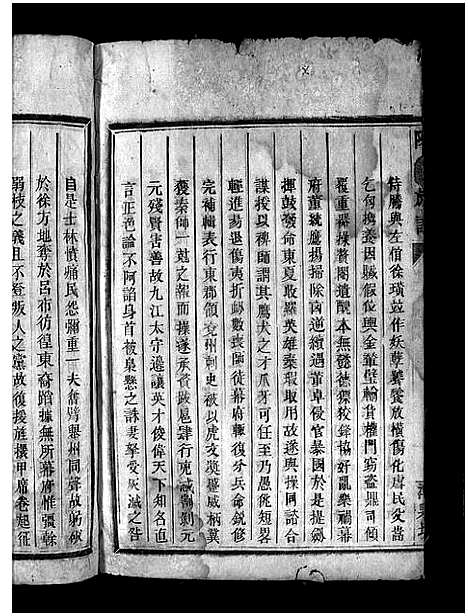 侍騰與左悺徐璜並作妖孽饕餮放橫傷化虐民父嵩
乞匄攜養因贓假位輿金輦璧輸貨權門竊盜鼎司傾
覆重器操贅閹遺醜本無懿德僄狡鋒協好亂樂禍幕
府董統鷹揚掃除凶逆續遇董卓侵官暴國於是提劍
揮鼓發命東夏收羅英雄棄瑕取用故遂與操同諮合
謀授以裨師謂其鷹犬之才爪牙可任至乃愚佻短畧
輕進易退傷夷折衂數喪師徒幕府輒復分兵命銳修
完補輯表行東郡領兗州刺史被以虎文獎蹙威柄冀
獲秦師一尅之報而操遂承資跋扈肆行兇忒割剝元
元殘賢害善故九江太守邊讓英才俊偉天下知名直
言正色論不阿諂身首被梟懸之誅妻孥受灰滅之咎
自是士林憤痛民怨彌重一夫奮臂舉州同聲故躬破
於徐方地奪於呂布彷徨東裔蹈據無所幕府惟强幹
弱枝之義且不登叛人之黨故復援旌擐甲席卷起征